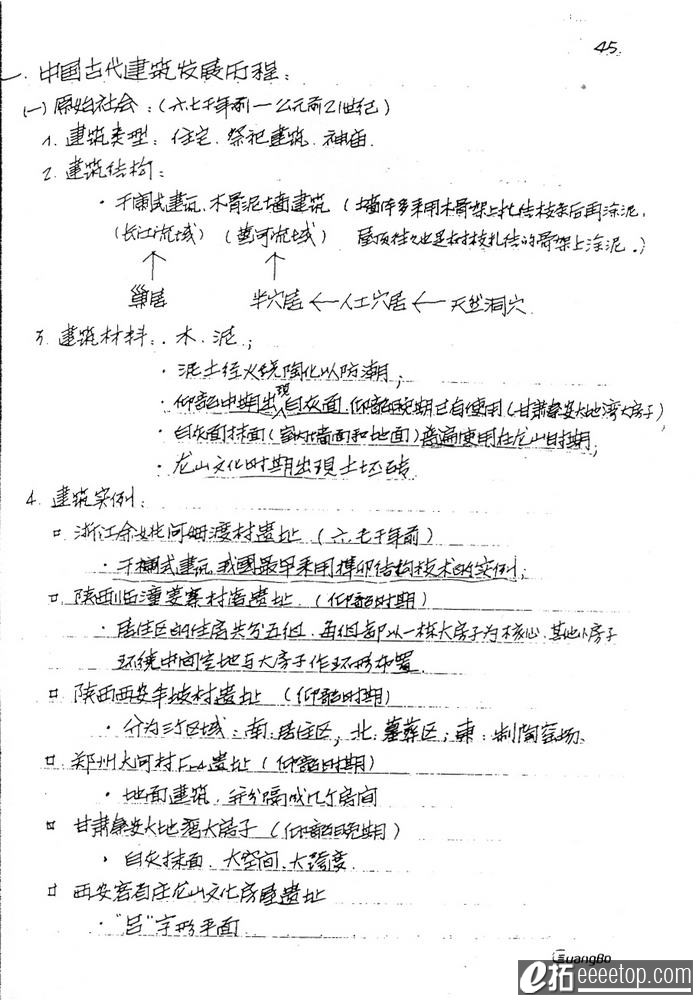 45.
一. 中国古代建筑发展历程:
(一) 原始社会:(六七千年前—公元前21世纪)
1. 建筑类型: 住宅. 祭祀建筑. 神庙.
2. 建筑结构:
· 干阑式建筑. 木骨泥墙建筑 (墙体多采用木骨架上扎结枝条后再涂泥,
(长江流域) (黄河流域) 屋顶往往也是树枝扎结的骨架上涂泥.)
↑ ↑
巢居 半穴居 ← 人工穴居 ← 天然洞穴
3. 建筑材料: 木. 泥.;
· 泥土经火烧陶化以防潮;
· 仰韶中期出现白灰面. 仰韶晚期已有使用(甘肃秦安大地湾大房子)
· 白灰面抹面(室内墙面和地面)普遍使用在龙山时期;
· 龙山文化时期出现土坯砖.
4. 建筑实例:
□ 浙江余姚河姆渡村遗址 (六.七千年前)
· 干阑式建筑. 我國最早采用榫卯结构技术的实例;
□ 陕西临潼姜寨村落遗址. (仰韶时期)
· 居住区的住房共分五组. 每组都以一栋大房子为核心. 其他小房子
环绕中间空地与大房子作环形布置.
□ 陕西西安半坡村遗址 (仰韶时期)
· 分为三个区域: 南:居住区, 北:墓葬区; 東:制陶窑场.
□ 郑州大河村F1-4遗址 (仰韶时期)
· 地面建筑. 并分隔成几个房间
□ 甘肃秦安大地湾大房子 (仰韶晚期)
· 白灰抹面. 大空间. 大跨度.
□ 西安客省庄龙山文化房屋遗址
· "吕"字形平面
GuangBo
e拓 eeetop.com